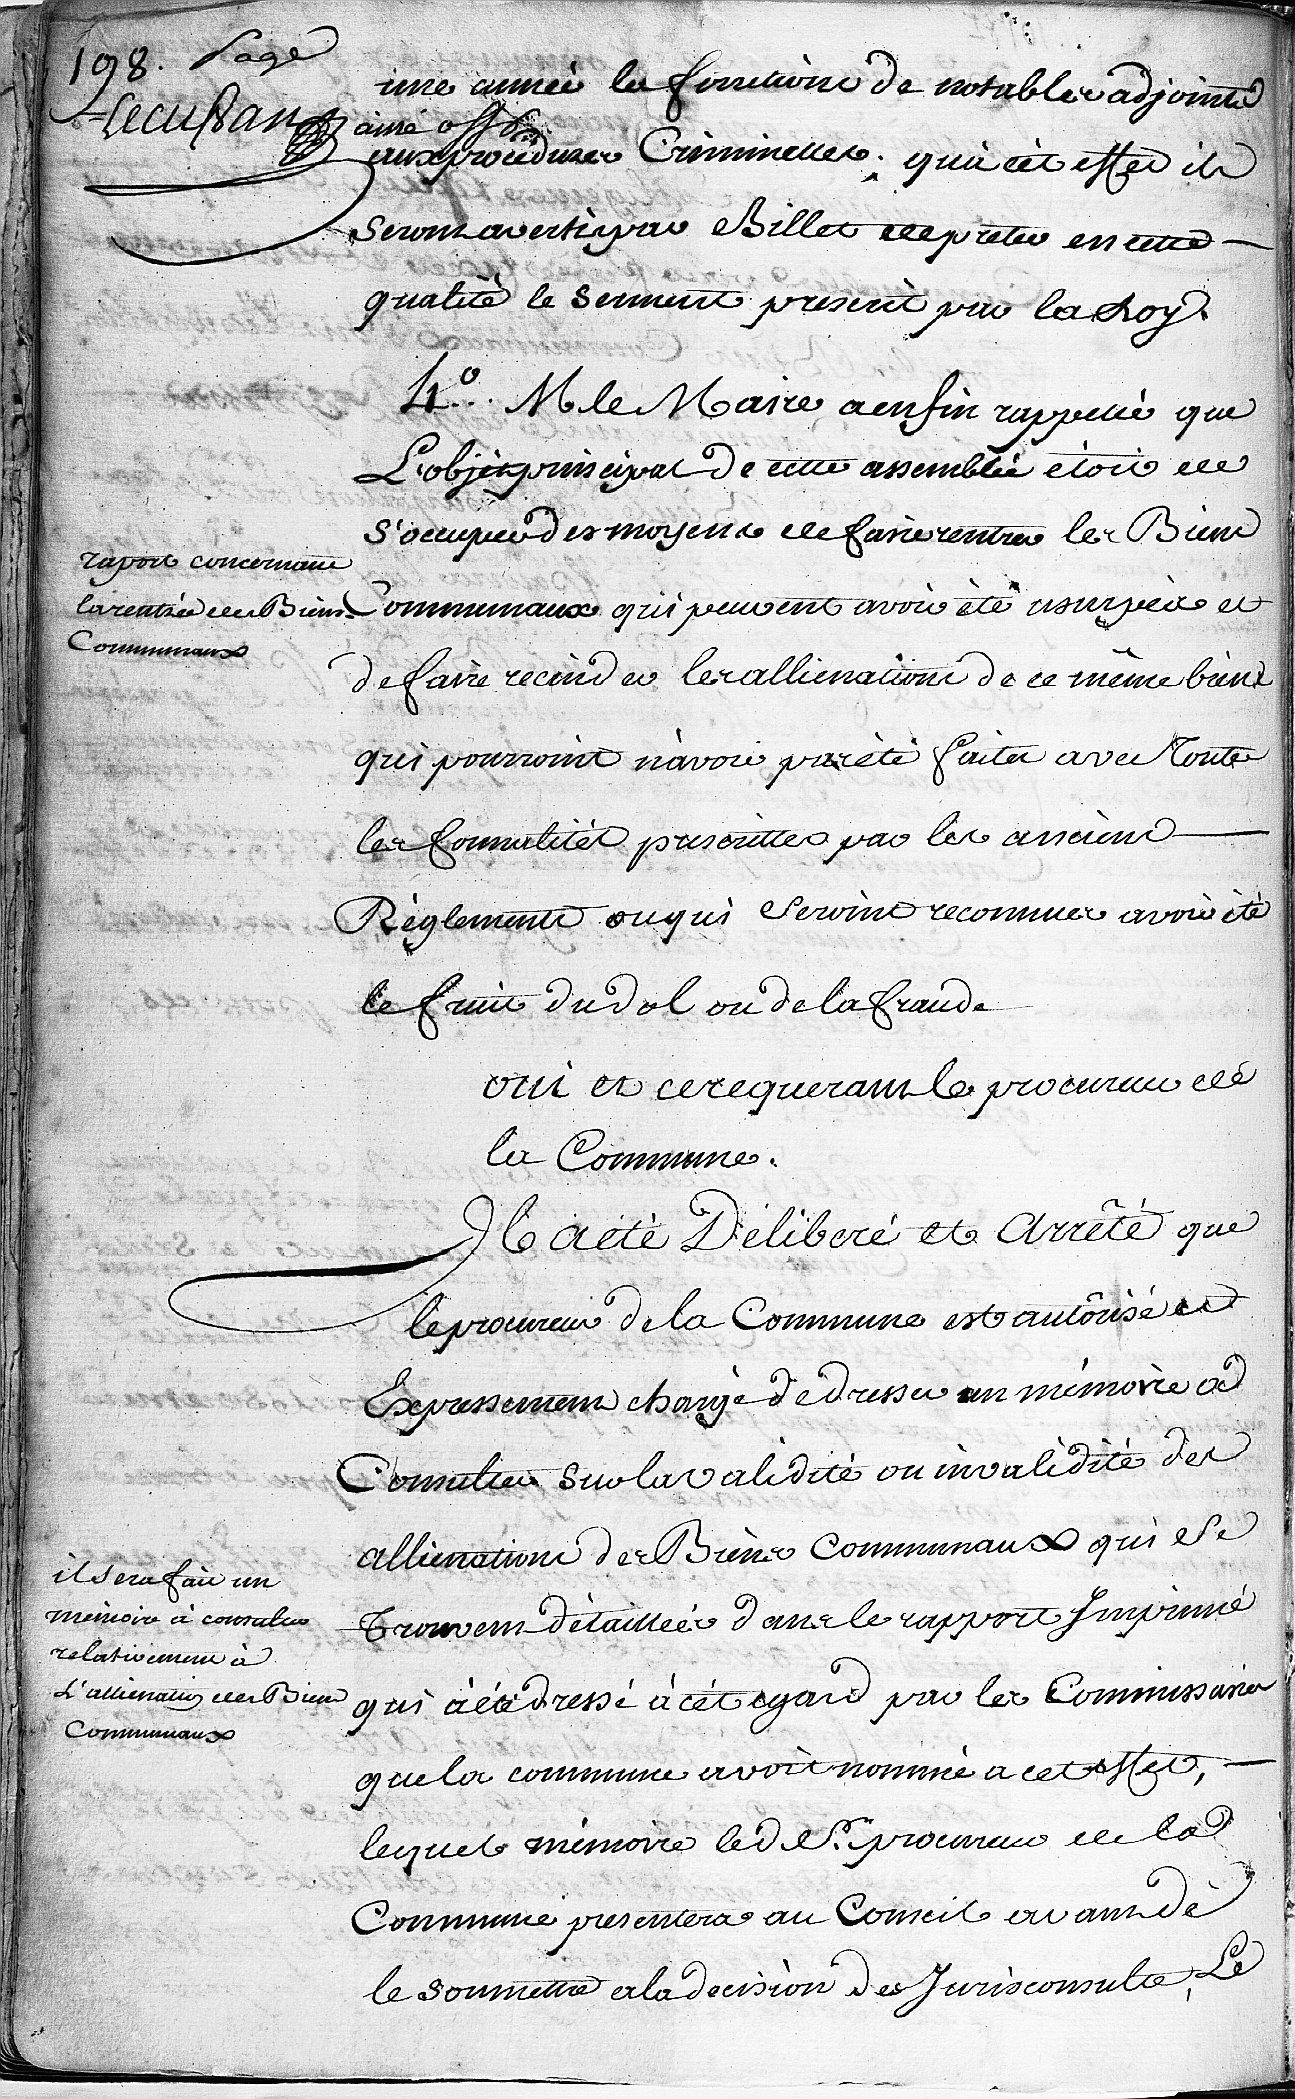 198. Page
Lecussan ainé off
une année les fonctions de notables adjoints
aux procédures Criminelles. qu'a cèt effet ils
seront avertis par Billet de preter en cette
qualité le serment prescrit par la Loy.
4.° M. le Maire a enfin rappellé que
L'objèt principal de cette assemblée étoit de
s'occuper des moyens de faire rentrer les Biens
raport concernant
la rentrée des Biens
Communaux
Communaux qui peuvent avoir été usurpés et
de faire recinder les allienations de ce même biens
qui pourroint n'avoir pas été faites avec Toute
les formalités prescrittes par les anciens
Règlements ou qui seroint reconnues avoir été
le fruit du dol ou de la fraude
oui et ce requerant le procureur de
la Commune.
Il a été Déliberé et Arrêté que
le procureur de la Commune est autôrisé et
Expressement chargé de dresser un mémoire a
Consulter sur la validité ou invalidité des
allienations des Biens Communaux qui se
il sera fait un
mémoire à consulter
relativement à
L'allienation des Biens
Communaux
Trouvent détaillées dans le rapport Imprimé
qui a été dressé à cét egard par les Commissaires
que la commune avoit nommé a cet effet,
lequel mémoire led. Sr. procureur de la
Commune presentera au Conseil avant de
le soumettre a la decision des Jurisconsulte, Le